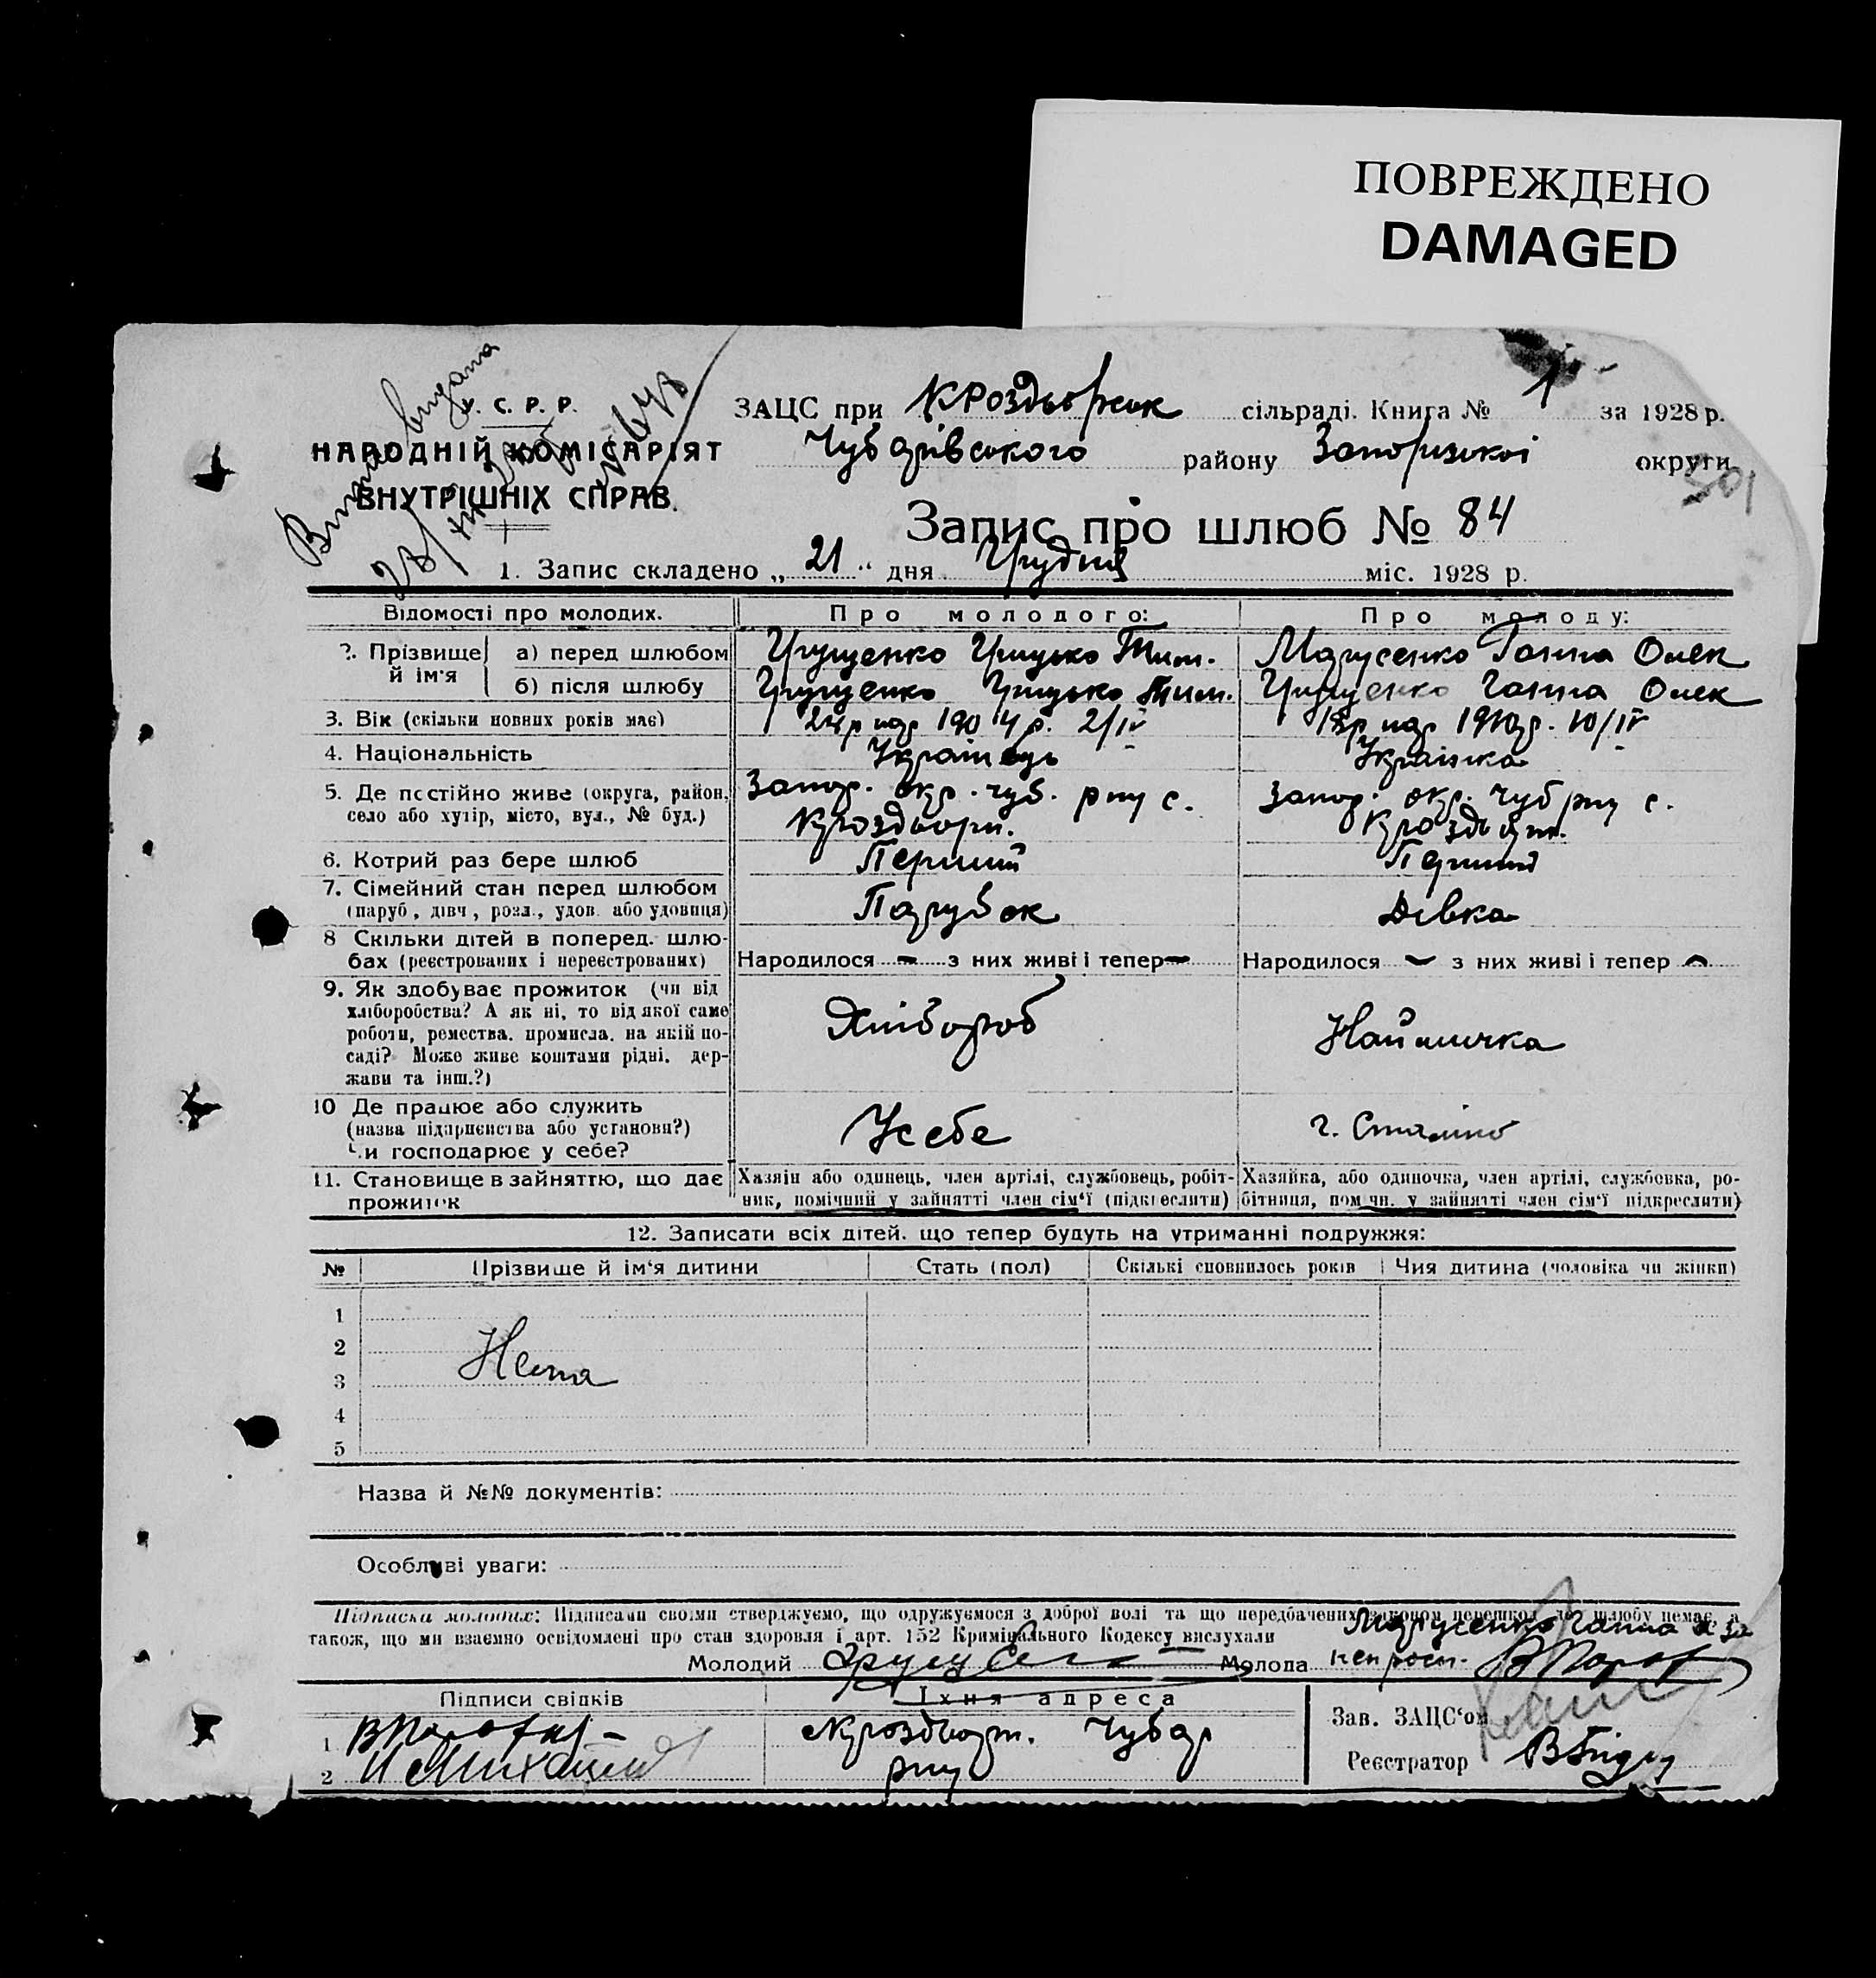 ПОВРЕЖДЕНО
DAMAGED
У. С. Р. Р.
НАРОДНІЙ КОМІСАРІЯТ
ВНУТРІШНІХ СПРАВ.
Виписка видана
ЗАЦС при КРоздьорськ сільраді. Книга № 1 за 1928 р.
Чубарівського району Запоризької округи
301
Запис про шлюб № 84
1. Запис складено „ 21 “ дня Грудня міс. 1928 р.
Відомості про молодих. Про молодого: Про молоду:
2. Прізвище й ім'я а) перед шлюбом Грущенко Грицько Тим. Марусенко Ганна Олек
б) після шлюбу Грущенко Грицько Тим. Грущенко Ганна Олек
3. Вік (скільки повних років має) 24р нар 1904 р. 2/IV 18р нар 1910р. 10/IV
4. Національність Українець Українка
5. Де постійно живе (округа, район, Запор. окр. чуб. рну с. Запор. окр. Чуб рну с.
село або хутір, місто, вул., № буд.) Кроздьорн.
6. Котрий раз бере шлюб Перший Перший
7. Сімейний стан перед шлюбом Парубок Дівка
(паруб, дівч, розл., удов. або удовиця)
8 Скільки дітей в поперед. шлю-
бах (реєстрованих і нереєстрованих) Народилося - з них живі і тепер - Народилося - з них живі і тепер -
9. Як здобуває прожиток (чи від
хліборобства? А як ні, то від якої саме Хлібороб Наймичка
роботи, ремества, промисла, на якій по-
саді? Може живе коштами рідні, дер-
жави та інш.?)
10 Де працює або служить Усебе г. Сталіно
(назва підприємства або установи?)
Чи господарює у себе?
11. Становище в зайняттю, що дає Хазяїн або одинець, член артілі, службовець, робіт- Хазяйка, або одиночка, член артілі, службовка, ро-
прожиток ник, помічний у зайнятті член сім'ї (підкреслити) бітниця, помічн. у зайнятті член сім'ї підкреслити)
12. Записати всіх дітей, що тепер будуть на утриманні подружжя:
№ Прізвище й ім'я дитини Стать (пол) Скількі сповнилось років Чия дитина (чоловіка чи жінки)
1
2 Нема
3
4
5
Назва й №№ документів:
Особливі уваги:
Підписка молодих: Підписами своїми стверджуємо, що одружуємося з доброї волі та що передбачених законом перешкод до шлюбу немає, а
також, що ми взаємно освідомлені про стан здоровля і арт. 152 Кримінального Кодексу вислухали Марусенко Ганна
Молодий Молода
Підписи свідків Їхня адреса Зав. ЗАЦС'ом
1 Чубар
2 рну Реєстратор